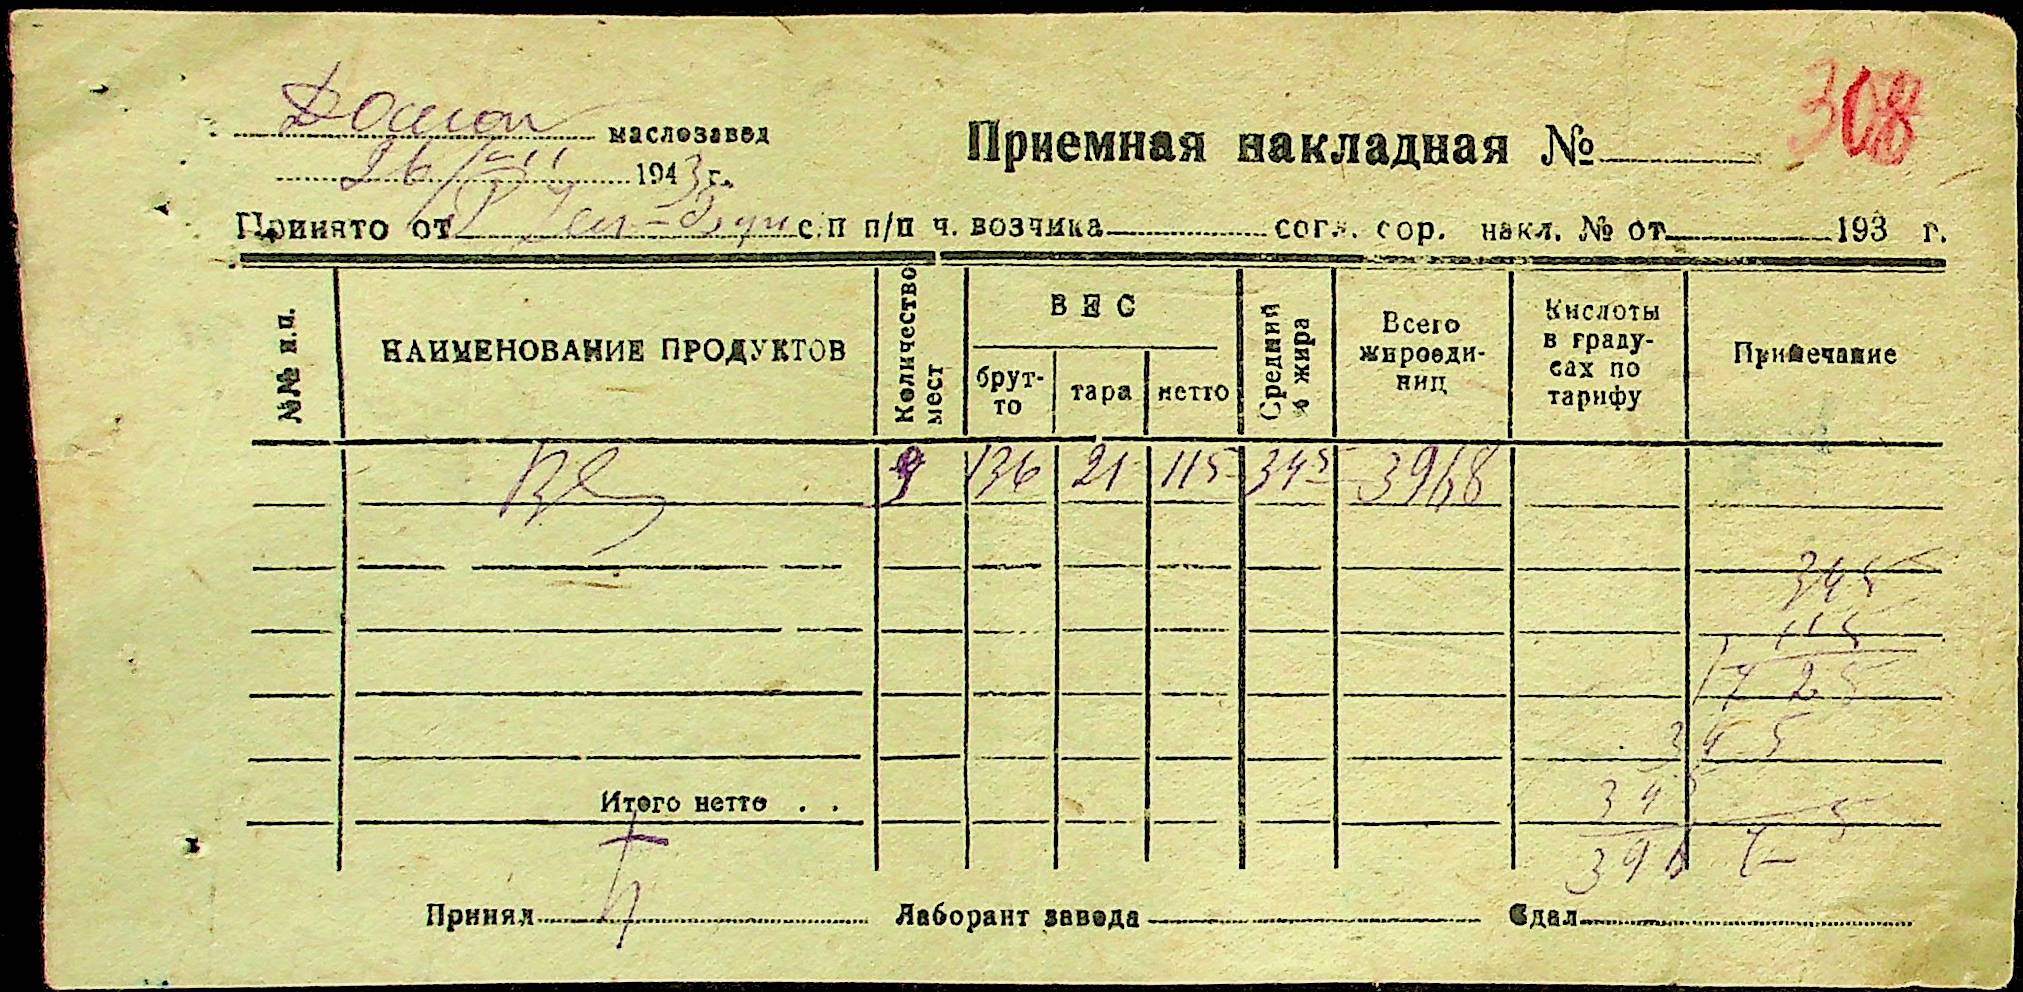 маслозавод
Приемная накладная № 308
26/VII 1943 г.
Принято от с.п п/п ч. возчика согл. сор. накл. № от 193 г.
№№ п.п.
НАИМЕНОВАНИЕ ПРОДУКТОВ
Количество мест
ВЕС
брут-
то
тара
нетто
Средний
% жира
Всего
жироеди-
ниц
Кислоты
в граду-
сах по
тарифу
Примечание
9 136 21 115 345 3968
345
115
1725
345
345
Итого нетто . .
Принял Лаборант завода Сдал